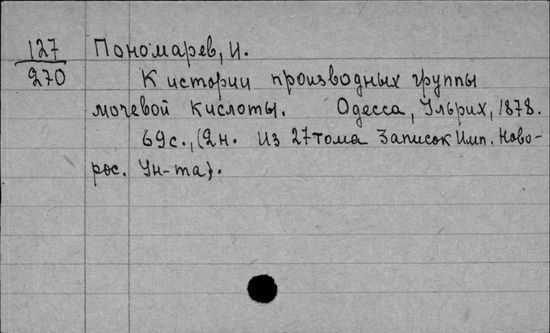 127
270
Пономарев, И.
К истории производных группы
мочевой кислоты. Одесса, Ульрих, 1878.
69с., (2н. Из 27 тома Записок Имп. Ново-
рос. Ун-та).